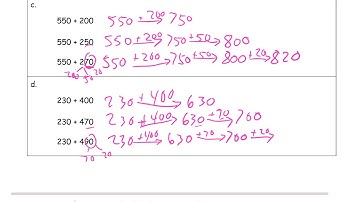 c.
550 + 200 550 +200 → 750
550 + 250 550 +200 → 750 +50 → 800
550 + 270 550 +200 → 750 +50 → 800 +20 → 820
200 50 20
d.
230 + 400 230 +400 → 630
230 + 470 230 +400 → 630 +70 → 700
230 + 490 230 +400 → 630 +70 → 700 +20 →
70 20